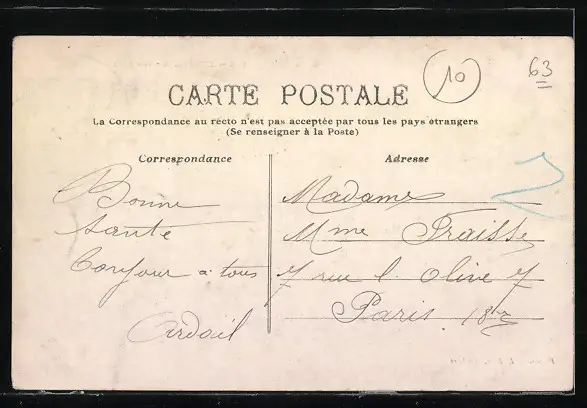 10
63
CARTE POSTALE
La Correspondance au recto n'est pas acceptée par tous les pays étrangers
(Se renseigner à la Poste)
Correspondance
Adresse
Bonne
santé
Bonjour a tous
Ardail
Madame
Mme Fraisse
7 rue l. Olive 7
Paris 18e